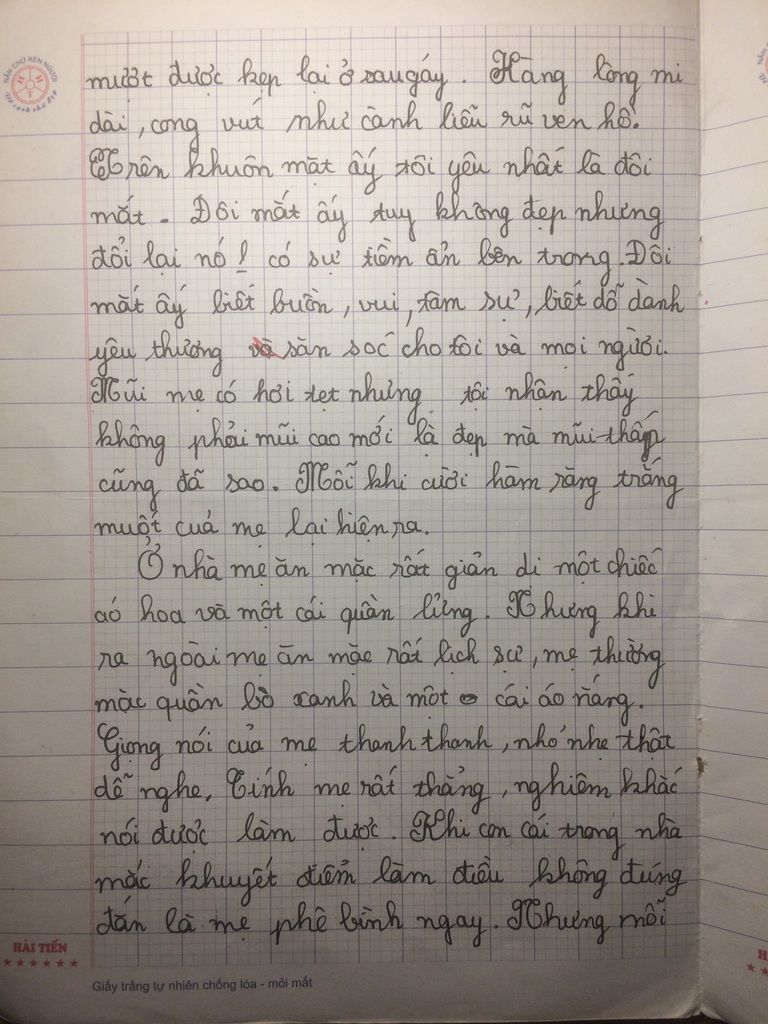 NẮN CHỮ RÈN NGƯỜI
H H T
Vở sạch chữ đẹp
mượt được kẹp lại ở sau gáy. Hàng lông mi
dài, cong vút như cành liễu rũ ven hồ.
Trên khuôn mặt ấy tôi yêu nhất là đôi
mắt. Đôi mắt ấy tuy không đẹp nhưng
đổi lại nó ! có sự tiềm ẩn bên trong. Đôi
mắt ấy biết buồn, vui, tâm sự, biết dỗ dành
yêu thương và săn sóc cho tôi và mọi người.
Mũi mẹ có hơi tẹt nhưng tôi nhận thấy
không phải mũi cao mới là đẹp mà mũi thấp
cũng đã sao. Mỗi khi cười hàm răng trắng
muốt của mẹ lại hiện ra.
Ở nhà mẹ ăn mặc rất giản dị một chiếc
aó hoa và một cái quần lửng. Nhưng khi
ra ngoài mẹ ăn mặc rất lịch sự, mẹ thường
mặc quần bò xanh và một cái áo nắng.
Giọng nói của mẹ thanh thanh, nhỏ nhẹ thật
dễ nghe. Tính mẹ rất thẳng, nghiêm khắc
nói được làm được. Khi con cái trong nhà
mắc khuyết điểm làm điều không đứng
đắn là mẹ phê bình ngay. Nhưng mỗi
HẢI TIẾN
Giấy trắng tự nhiên chống lóa - mỏi mắt